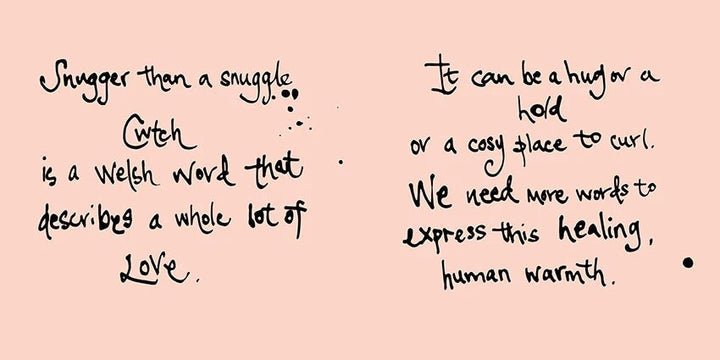 Snugger than a snuggle
Cwtch
is a Welsh word that
describes a whole lot of
Love.
It can be a hug or a
hold
or a cosy place to curl.
We need more words to
express this healing,
human warmth.